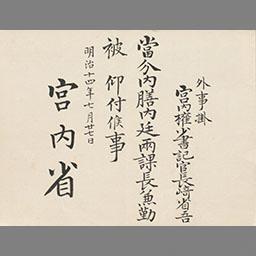 外事掛
宮内権少書記官長崎省吾
當分内膳内廷両課長兼勤
被 仰付候事
明治十四年七月廿七日
宮内省